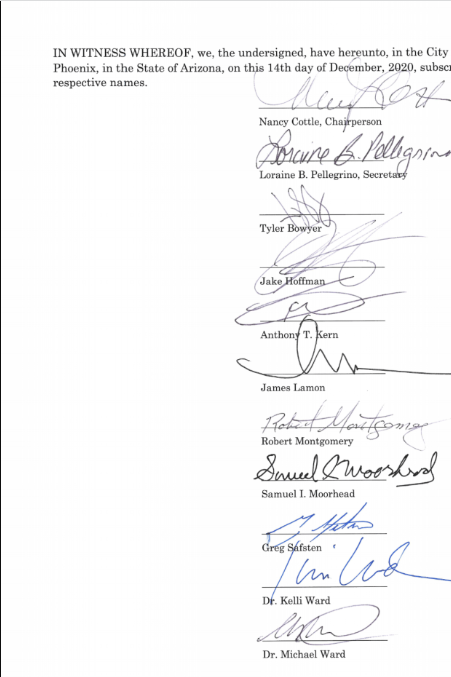 IN WITNESS WHEREOF, we, the undersigned, have hereunto, in the City
Phoenix, in the State of Arizona, on this 14th day of December, 2020, subsc
respective names.
Nancy Cottle, Chairperson
Loraine B. Pellegrino
Loraine B. Pellegrino, Secretary
Tyler Bowyer
Jake Hoffman
Anthony T. Kern
James Lamon
Robert Montgomery
Robert Montgomery
Samuel I Moorhead
Samuel I. Moorhead
Greg Safsten
Dr. Kelli Ward
Dr. Michael Ward